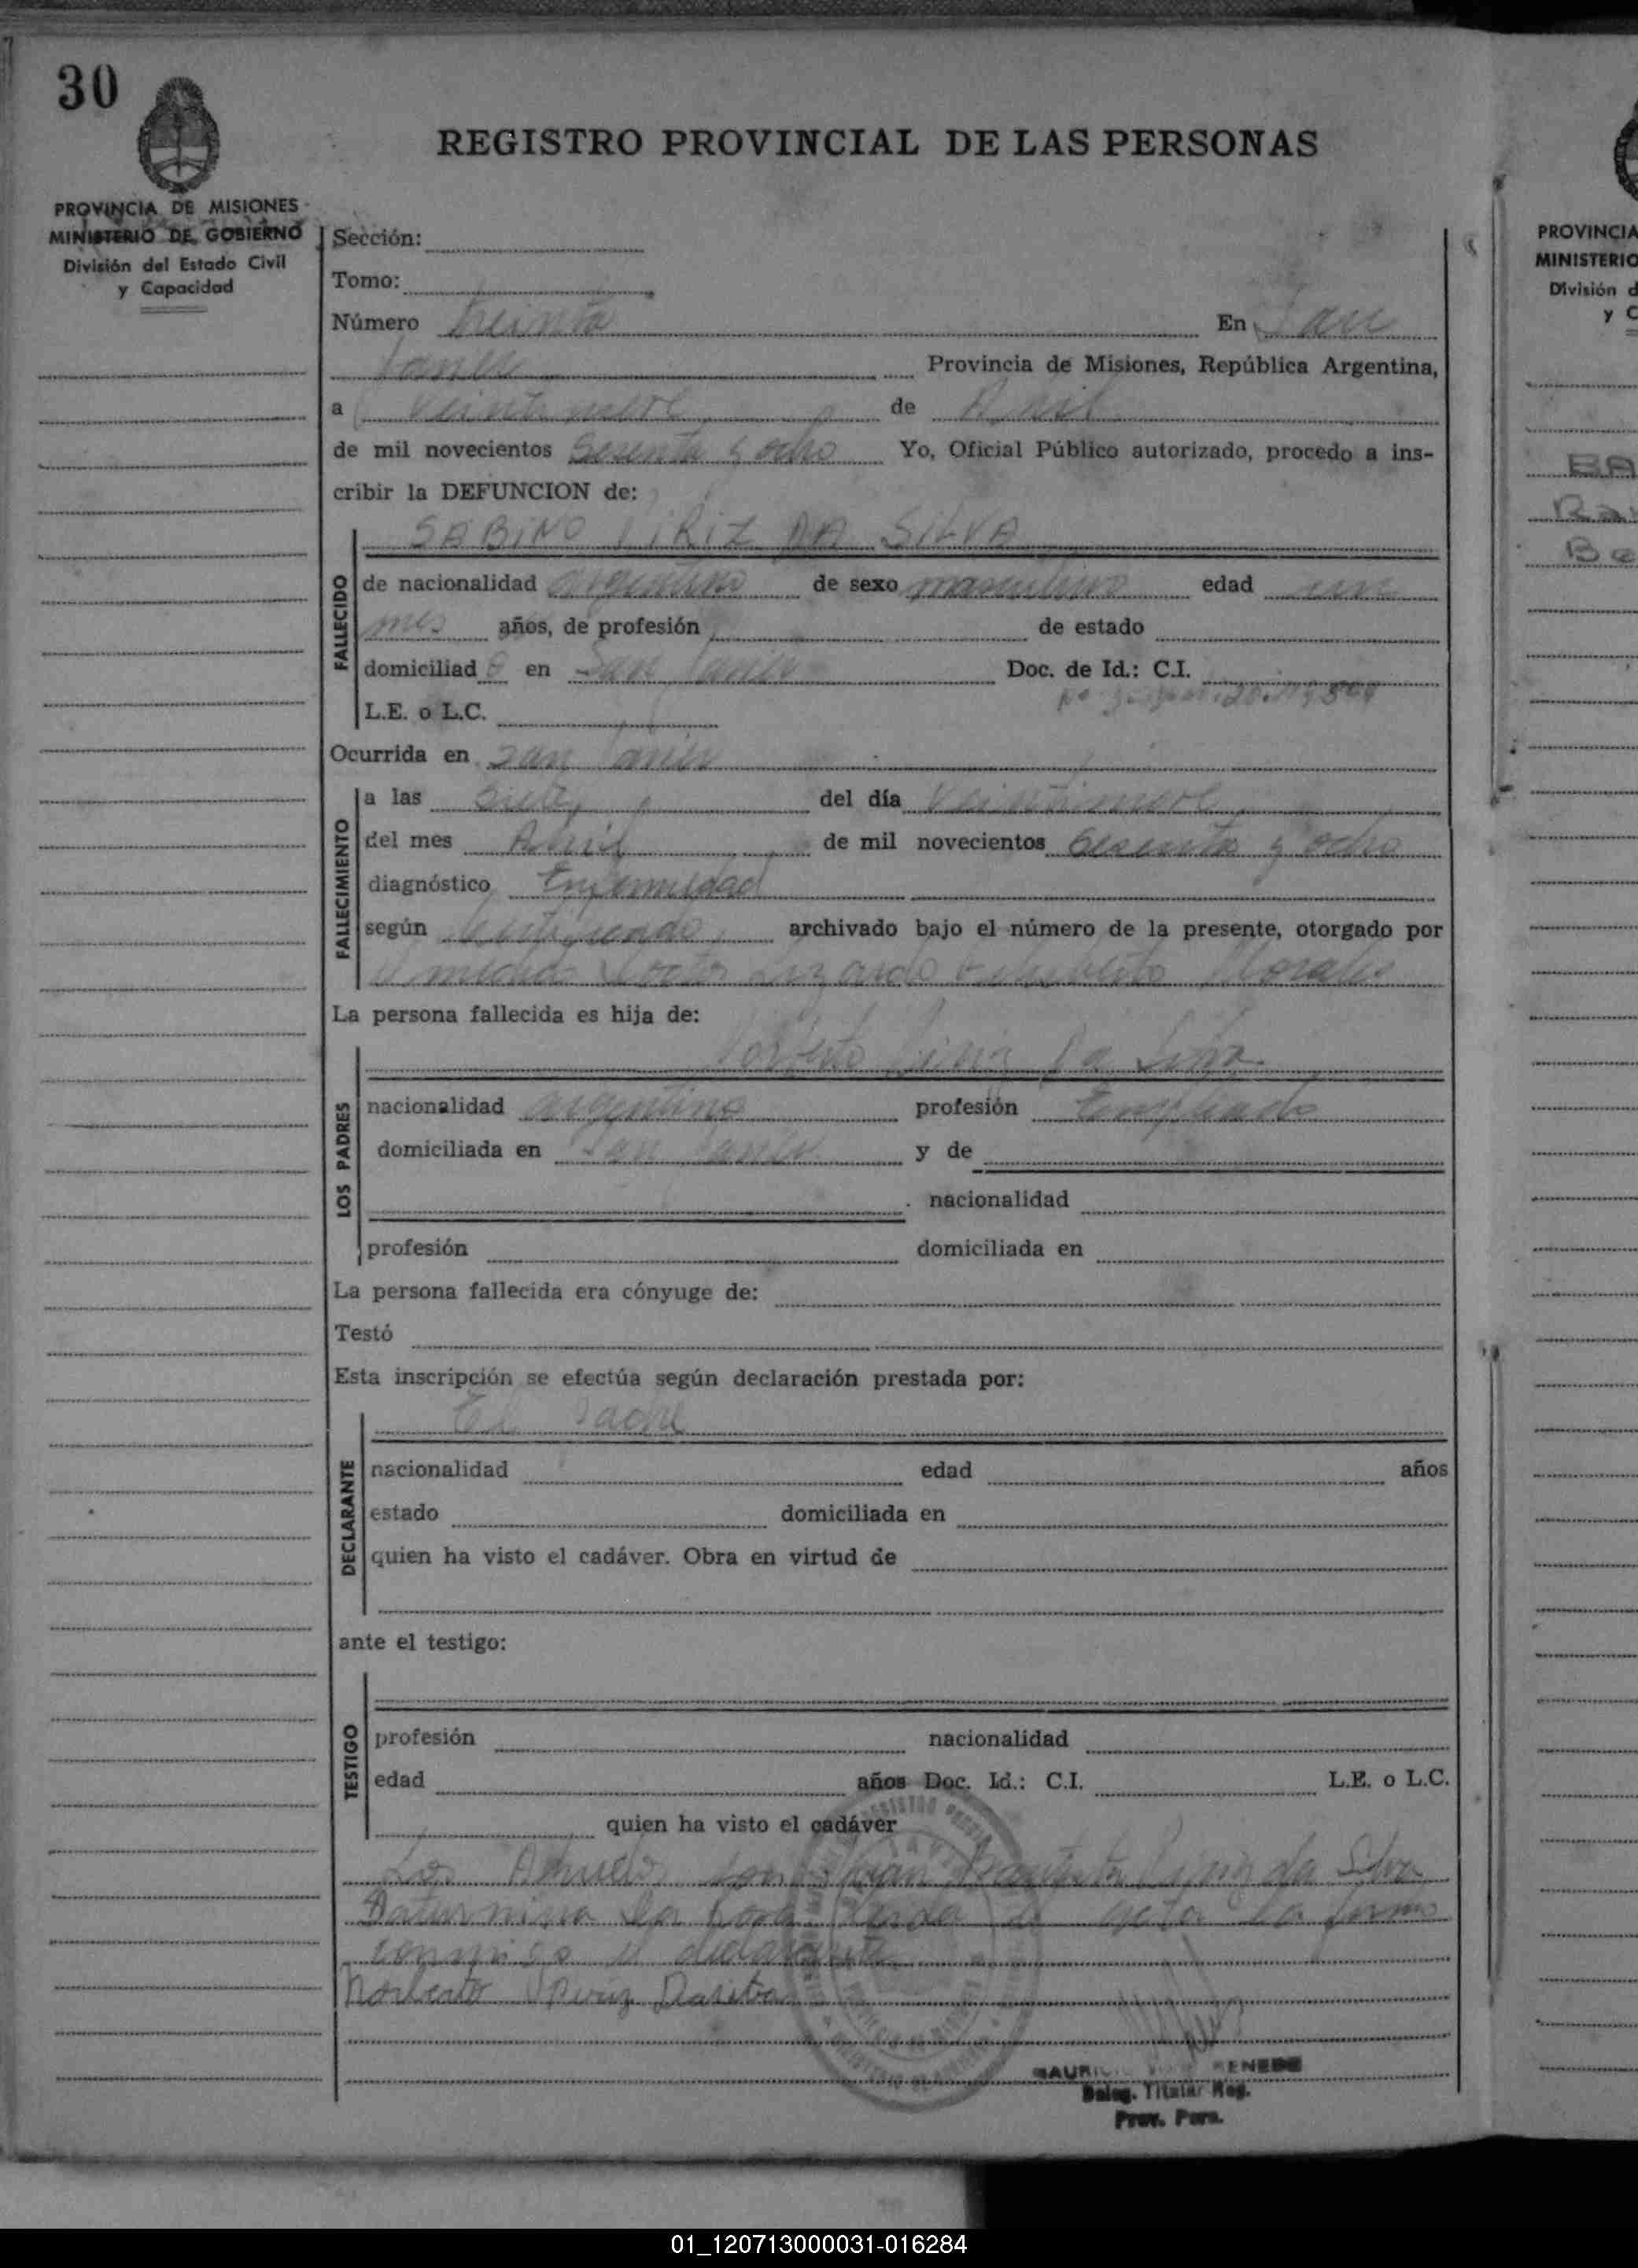 30
REGISTRO PROVINCIAL DE LAS PERSONAS
PROVINCIA DE MISIONES
MINISTERIO DE GOBIERNO
División del Estado Civil
y Capacidad
Sección:
Tomo:
Número treinta En San
Javier Provincia de Misiones, República Argentina,
a veintinueve de Abril
de mil novecientos sesenta y ocho Yo, Oficial Público autorizado, procedo a ins-
cribir la DEFUNCION de:
SABINO PIRIZ DA SILVA
FALLECIDO
de nacionalidad argentino de sexo masculino edad un
mes años, de profesión de estado
domiciliado en San Javier Doc. de Id.: C.I.
L.E. o L.C.
Ocurrida en San Javier
FALLECIMIENTO
a las siete del día veintinueve
del mes Abril de mil novecientos sesenta y ocho
diagnóstico Enfermedad
según certificado archivado bajo el número de la presente, otorgado por
el médico Doctor Lizardo Morales
La persona fallecida es hija de:
LOS PADRES
Norberto Piriz Da Silva
nacionalidad argentino profesión Empleado
domiciliada en San Javier y de
nacionalidad
profesión domiciliada en
La persona fallecida era cónyuge de:
Testó
Esta inscripción se efectúa según declaración prestada por:
DECLARANTE
El Padre
nacionalidad edad años
estado domiciliada en
quien ha visto el cadáver. Obra en virtud de
ante el testigo:
TESTIGO
profesión nacionalidad
edad años Doc. Id.: C.I. L.E. o L.C.
quien ha visto el cadáver
Los Abuelos son Juan Bautista Piriz da Silva
Saturnina da Rosa Leida el acta la firma
conmigo el declarante
Norberto Piriz Dasilva
Deleg. Titular Reg.
Prov. Pers.
PROVINCIA
MINISTERIO
División d
y C
BA
Be
01_120713000031-016284